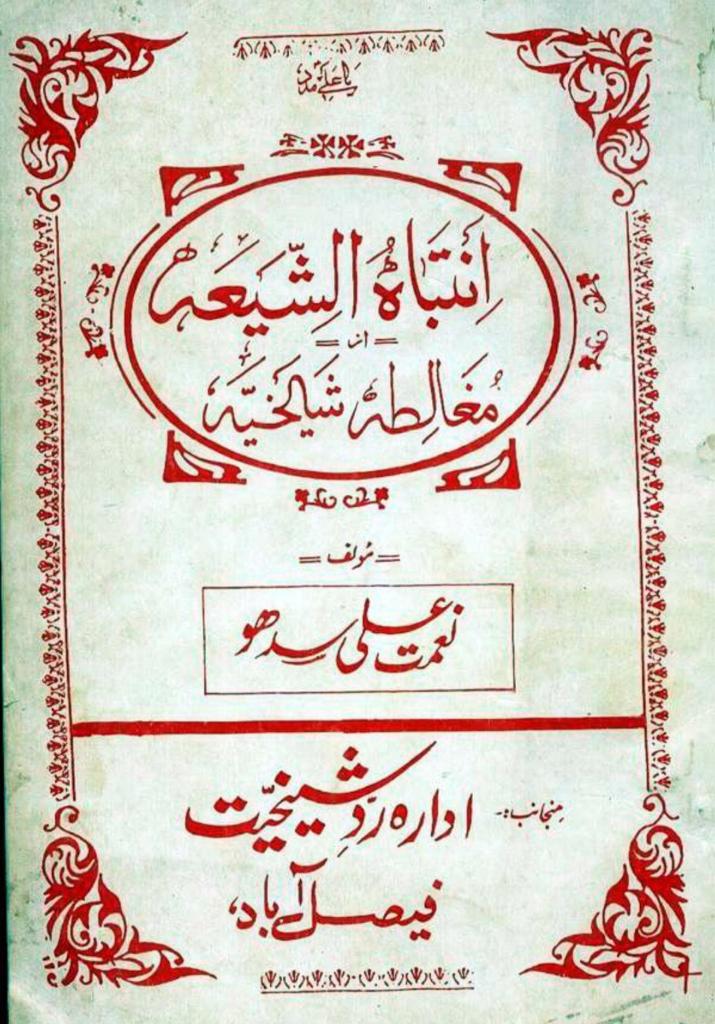 یا علیؑ مدد
اِنتَباہُ الشِّیعَہ
= از =
مُغَالِطہ شیالخیَّہ
= مُولف =
نعمت علی سدھو
منجانب:-
ادارہ ردِّ شیخیّت
فیصل آباد،